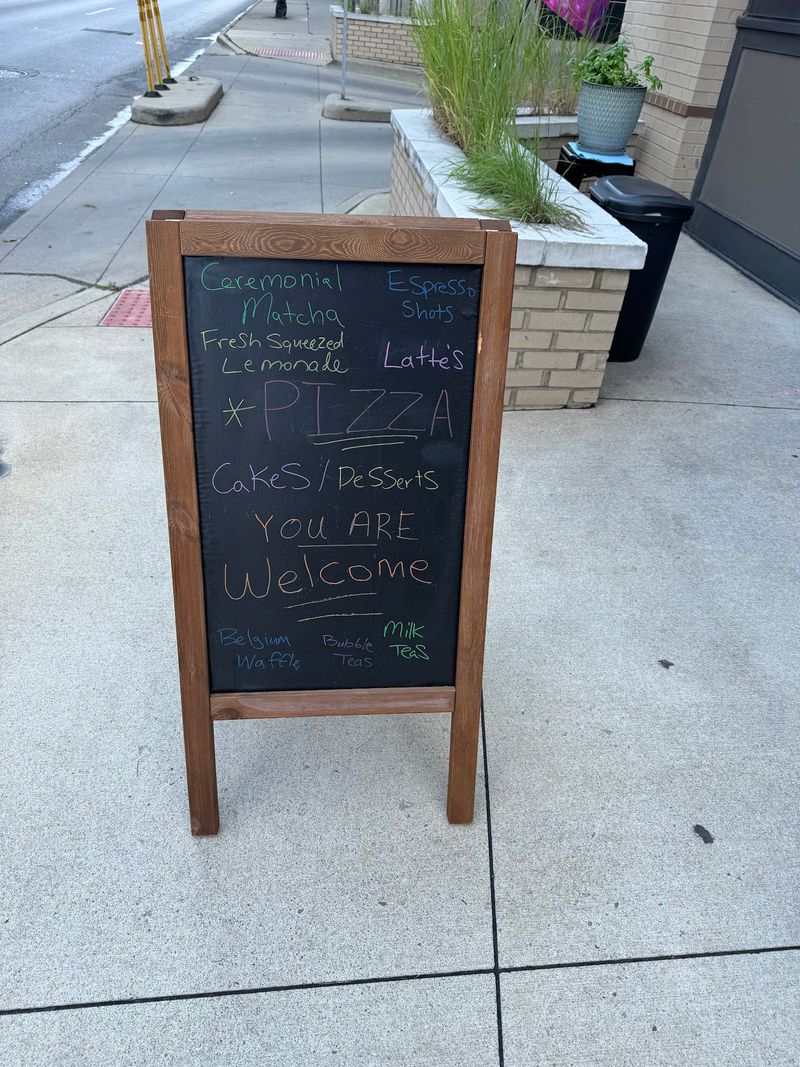 Ceremonial
Matcha
Espresso
Shots
Fresh Squeezed
Lemonade
Latte's
* PIZZA
Cakes / Desserts
YOU ARE
Welcome
Belgium
Waffle
Bubble
Teas
Milk
Teas